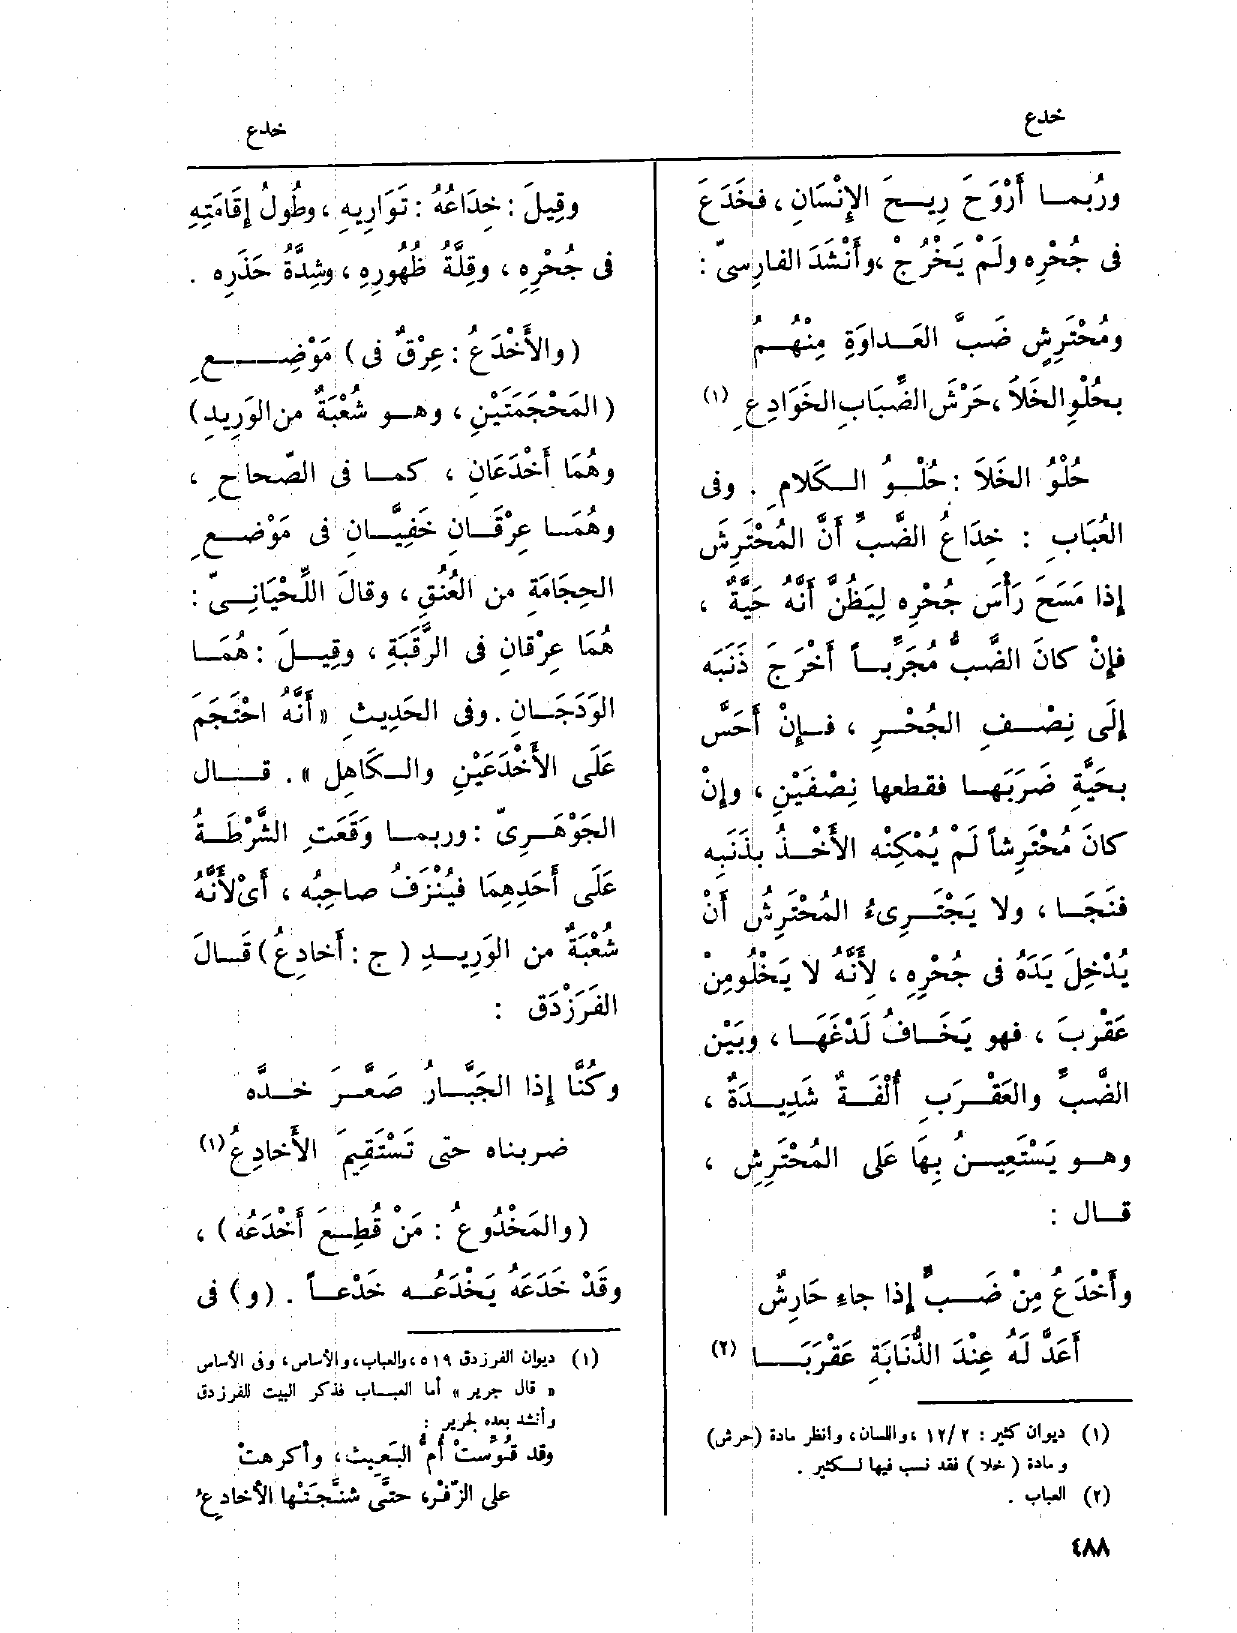 خدع
خدع
ورُبما أَرْوَحَ رِيحَ الإِنْسَانِ، فخَدَعَ
فى جُحْرِه ولَمْ يَخْرُجْ، وأَنْشَدَ الفارِسىّ :
ومُحْتَرِشٍ ضَبَّ العَداوَةِ مِنْهُمُ
بحُلْوِ الخَلاَ، حَرْشَ الضِّبَابِ الخَوَادِعِ (١)
حُلْوُ الخَلاَ : حُلْوُ الكَلامِ . وفى
العُبَابِ : خِدَاعُ الضَّبِّ أَنَّ المُحْتَرِشَ
إِذا مَسَحَ رَأْسَ جُحْرِه لِيَظُنَّ أَنَّهُ حَيَّةٌ ،
فإِنْ كانَ الضَّبُّ مُجَرِّباً أَخْرَجَ ذَنَبَه
إِلَى نِصْفِ الجُحْرِ ، فإِنْ أَحَسَّ
بحَيَّةٍ ضَرَبَها فقطعها نِصْفَيْنِ ، وإِنْ
كانَ مُحْتَرِشاً لَمْ يُمْكِنْه الأَخْذُ بذَنَبِه
فنَجَا ، ولا يَجْتَرِىءُ المُحْتَرِشُ أَنْ
يُدْخِلَ يَدَهُ فى جُحْرِهِ ، لِأَنَّهُ لا يَخْلُو مِنْ
عَقْرَبَ ، فهو يَخَافُ لَدْغَهَا ، وبَيْن
الضَّبِّ والعَقْرَبِ أُلْفَةٌ شَدِيدَةٌ ،
وهو يَسْتَعِينُ بِهَا عَلَى المُحْتَرِشِ ،
قال :
وأَخْدَعُ مِنْ ضَبٍّ إِذا جاءِ حَارِشٌ
أَعَدَّ لَهُ عِنْدَ الذُّنَابَةِ عَقْرَبَا (٢)
(١) ديوان كثير : ١٢/٢ ، واللسان، وانظر مادة (حرش)
ومادة (خلا) فقد نسب فيها لكثير .
(٢) العباب .
٤٨٨
وقِيلَ : خِدَاعُهُ : تَوَارِيهِ ، وطُولُ إِقَامَتِهِ
فى جُحْرِهِ ، وقِلَّةُ ظُهُورِهِ ، وشِدَّةُ حَذَرِه .
(والأَخْدَعُ : عِرْقٌ فى) مَوْضِعِ
(المَحْجَمَتَيْنِ ، وهو شُعْبَةٌ من الوَرِيدِ)
وهُمَا أَخْدَعَانِ ، كما فى الصّحاحِ ،
وهُمَا عِرْقَانِ خَفِيَّانِ فى مَوْضِعِ
الحِجَامَةِ من العُنُقِ ، وقالَ اللِّحْيَانِىّ :
هُمَا عِرْقانِ فى الرَّقَبَةِ ، وقِيلَ : هُمَا
الوَدَجَانِ . وفى الحَدِيثِ « أَنَّهُ احْتَجَمَ
عَلَى الأَخْدَعَيْنِ والكَاهِلِ » . قال
الجَوْهَرِىّ : وربما وَقَعَتِ الشَّرْطَةُ
عَلَى أَحَدِهِمَا فيُنْزَفُ صاحِبُه ، أَىْ لأَنَّهُ
شُعْبَةٌ من الوَرِيدِ ( ج : أَخادِعُ ) قَالَ
الفَرَزْدَق :
وكُنَّا إِذا الجَبَّارُ صَعَّرَ خدَّه
ضربناه حتى تَسْتَقِيمَ الأَخادِعُ (١)
(والمَخْدُوعُ : مَنْ قُطِعَ أَخْدَعُه ) ،
وقَدْ خَدَعَهُ يَخْدَعُه خَدْعاً . (و) فى
(١) ديوان الفرزدق ٥١٩ ، والعباب، والأساس، وفى الأساس
« قال جرير » أما العباب فذكر البيت للفرزدق
وأنشد بعده لجرير :
وقد قُوِّسَتْ أمُّ البَعِيث، وأكرهتْ
على الزِّفْر، حتَّى شَنَّجَتْها الأخادِعُ